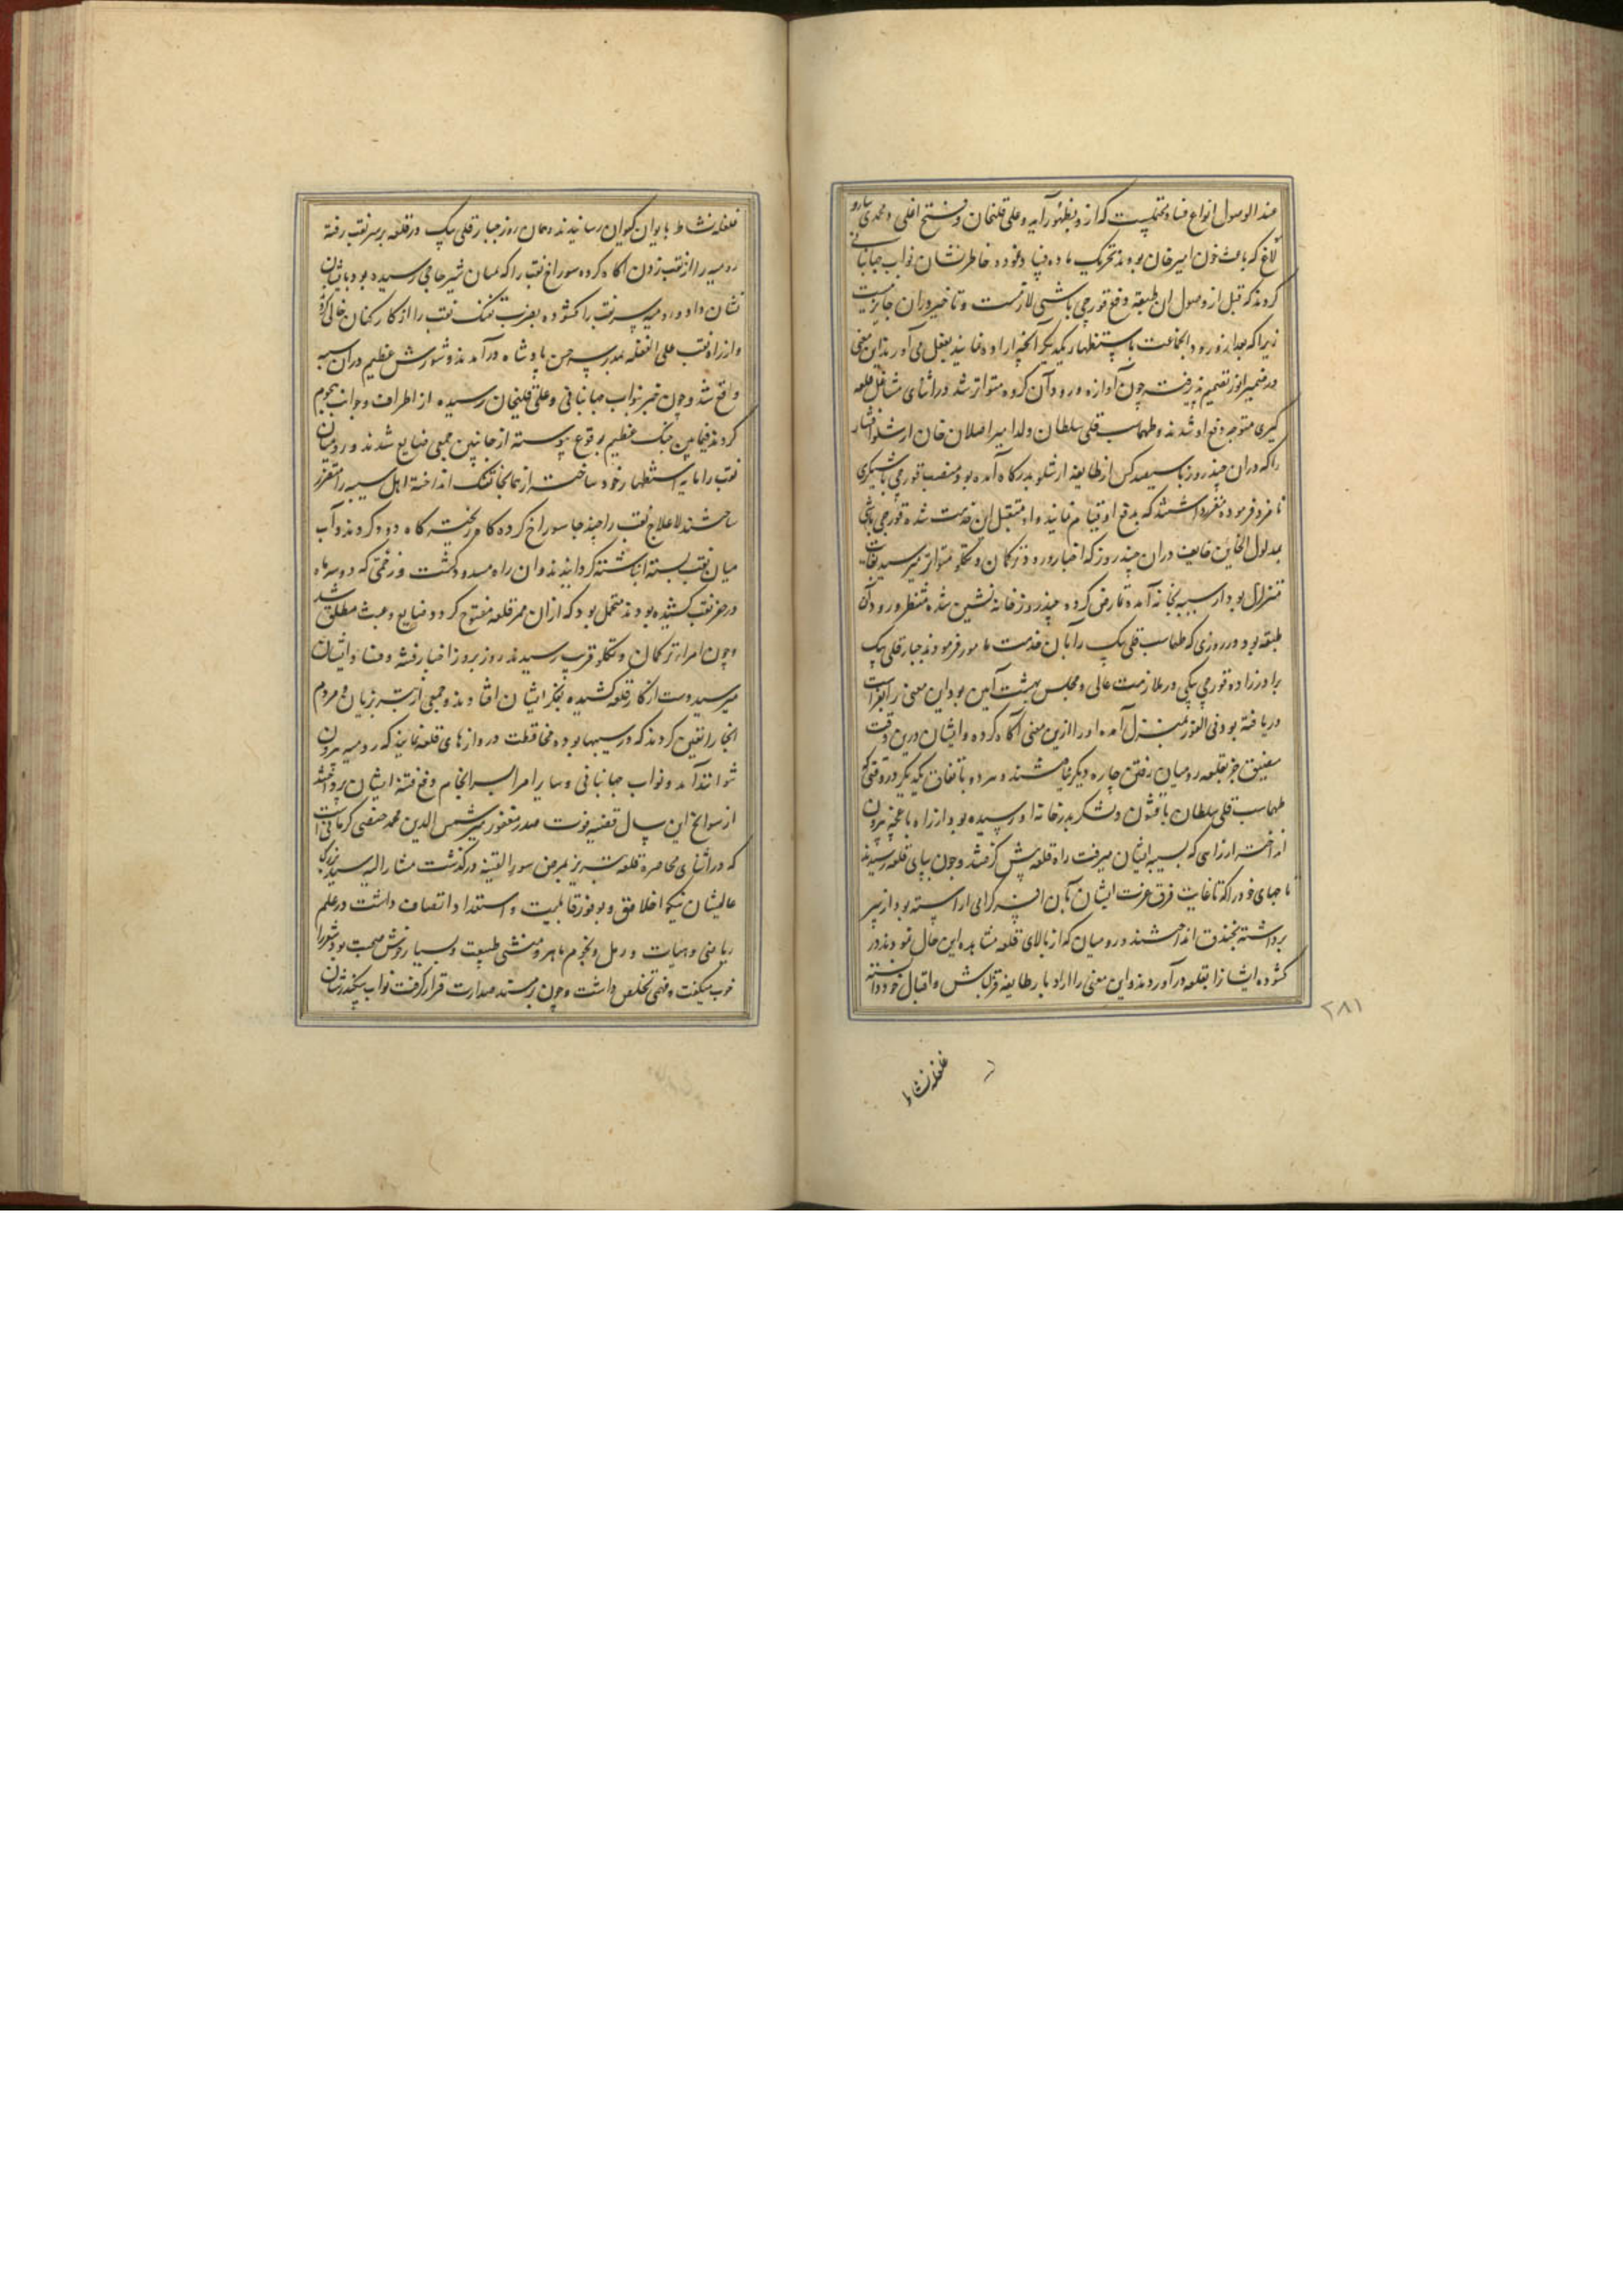 عند الوصول انواع فساد محتملست که ازو بظهور آید و علی قلیخان و فتح اغلی و محمدی ساروـ
لاغ که باعث خون امیر خان بودند تحریک ماده فساد نموده خاطرنشان نواب جهانبانی
کردند که قبل از وصول ان طبقه دفع قورچی باشی لازمست و تاخیر دران جایز نیست
زیرا که بعد از ورود انجماعت باستظهار یکدیگر انچه اراده نمایند بفعل می آورند این معنی
در ضمیر انور تصمیم پذیرفت چون آوازه ورود آن گروه متواتر شد در اثنای مشاغل قلعه
گیری متوجه دفع او شدند و طهماسب قلی سلطان ولد امیر اصلان خان ارشلو افشار
را که دران چند روز با سیصد کس از طایفه ارشلو بدرگاه آمده بود بمنصب قورچی باشیگری
نامزد فرموده مقرر داشتند که بدفع او قیام نمایند و او متقبل این خدمت شده قورچی باشی
بمدلول الخاین خایف دران چند روز که اخبار ورود ترکمان و تکلو متواتر میرسید بغایت
متزلزل بود از سیبه بخانه آمده تمارض کرده چند روز خانه نشین شده منتظر ورود آن
طبقه بود در روزی که طهماسب قلی بیک را بان خدمت مامور فرمودند جبار قلی بیک
برادرزاده قورچی بیکی در ملازمت عالی و مجلس بهشت آیین بود این معنی را بفراست
دریافته بود فی الفور بمنزل آمده او را ازین معنی آگاه کرده و ایشان درین وقت
مضیق جز بقلعه رومیان رفتن چاره دیگر نیافتند و هر دو باتفاق یکدیگر در وقتی که
طهماسب قلی سلطان با قشون و لشکر بدرخانه او رسیده بود از راه باغچه بیرون
انداخته از راهی که بسیبه ایشان میرفت راه قلعه پیش گرفتند و چون بپای قلعه رسیدند
تاجهای خود را که تا غایت فرق عزت ایشان بان افسر گرامی اراسته بود از سر
برداشته بخندق انداختند و رومیان که از بالای قلعه مشاهده این حال نمودند در
کشوده ایشانرا بقلعه درآوردند و این معنی را از ادبار طایفه قزلباش و اقبال خود دانسته
۲۸۱
غلغله نشاط
غلغله نشاط بایوان کیوان رسانیدند و همان روز جبار قلی بیک در قلعه بر سر نقب رفته
رومیه را از نقب زدن اگاه کرده سوراخ نقب را که بمیان شیر حاجی رسیده بود بایشان
نشان داد و رومیه سر نقب را کشوده بضرب تفنک نقب را از کارکنان خالی کرده
و از راه نقب علی الغفله بمدرسه حسن پادشاه درآمدند و شورش عظیم دران سیبه
واقع شد و چون خبر بنواب جهانبانی و علی قلیخان رسیده از اطراف و جوانب هجوم
کردند فیمابین جنک عظیم بوقوع پیوسته از جانبین جمعی ضایع شدند و رومیان
نقب را مایه استظهار خود ساخته از همانجا تفنک انداخته اهل سیبه را متفرق
ساختند لاعلاج نقب را چند جا سوراخ کرده کاه ریخته کاه دود کردند و آب
میان نقب بسته انباشته گردانیدند و ان راه مسدود گشت و زحمتی که دو سه ماه
در حفر نقب کشیده بودند محتمل بود که ازان ممر قلعه مفتوح گردد ضایع و عبث مطلق شد
و چون امراء ترکمان و تکلو قریب رسیدند روز بروز اخبار فتنه و فساد ایشان
میرسید دست از کار قلعه کشیده بفکر ایشان افتادند و جمعی از تبرزیان و مردم
انجا را تعیین کردند که در سیبها بوده محافظت دروازهای قلعه نمایند که رومیه بیرون
نتوانند آمد و نواب جهانبانی و سایر امرا بسرانجام دفع فتنه ایشان پرداختند
از سوانح این سال قضیه فوت صدر مغفور میر شمس الدین محمد خبیصی کرمانی است
که در اثنای محاصره قلعه تبریز بمرض سوء القنیه درگذشت مشارالیه سید بزرگ
عالیشان نیکو اخلاق و بوفور قابلیت و استعداد اتصاف داشت در علم
ریاضی و هیات و رمل و نجوم ماهر و منشی طبیعت و بسیار خوش صحبت بود شعر را
خوب میگفت و فهمی تخلص داشت و چون بر مسند صدارت قرار گرفت نواب سکندرشان